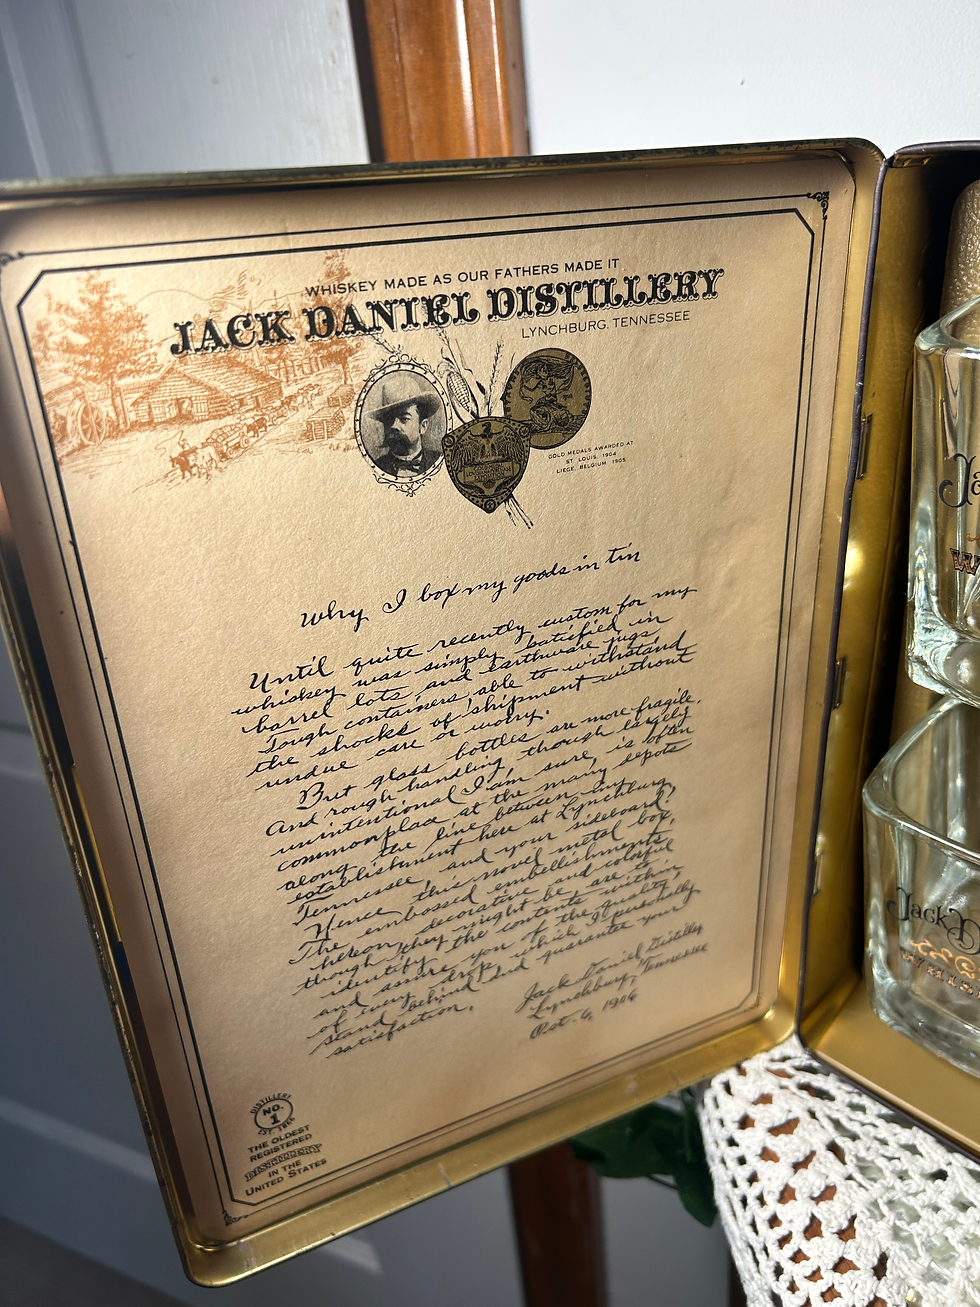 WHISKEY MADE AS OUR FATHERS MADE IT
JACK DANIEL DISTILLERY
LYNCHBURG, TENNESSEE
GOLD MEDALS AWARDED AT
ST. LOUIS, 1904
LIEGE, BELGIUM 1905
Why I box my goods in tin
Until quite recently custom for my
whiskey was simply satisfied in
barrel lots and earthware jugs,
Tough containers able to withstand
the shocks of shipment without
undue care or worry.
But glass bottles are more fragile,
And rough handling, though largely
unintentional I am sure, is often
commonplace at the many depots
along the line between my
establishment here at Lynchburg,
Tennessee, and your sideboard.
Hence this novel metal box,
The embossed embellishments
hereon, decorative and colorful
though they might be, are to
identify the contents within,
and assure you of the quality
of every drop which I personally
stand behind and guarantee your
satisfaction.
Jack Daniel Distillery
Lynchburg, Tennessee
Oct. 6, 1906
DISTILLERY
NO. 1
EST. 1866
THE OLDEST
REGISTERED
DISTILLERY
IN THE
UNITED STATES
Jack D